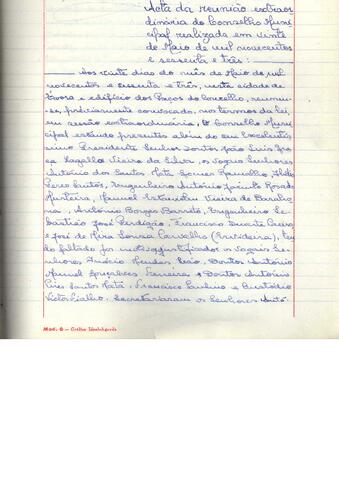 Acta da reunião extraor
dinária do Conselho Muni
cipal realizada em vinte
de Maio de mil novecentos
e sessenta e três:
Aos vinte dias do mês de Maio de mil
novecentos e sessenta e três, nesta cidade de
Évora e edifício dos Paços do Concelho, reuniu-
se, prèviamente convocado, nos termos da lei,
em sessão extraordinária, o Conselho Muni
cipal estando presentes além do seu Excelentís
simo Presidente Senhor Doutor João Luís
Vieira da Silva, os vogais Senhores
António dos Santos Mata Gomes Ramalho,
Peres Santos, Engenheiro António Jacinto Rosado
Manuel Estanislau Vieira de Barahona
, António Borges Barreto, Engenheiro Se-
bastião José Perdigão, Francisco Duarte
e José de Mira Sousa Carvalho (Ervideira),
do faltado por motivo justificado os vogais Se-
nhores, Inácio Mendes, Doutor António
Manuel Gonçalves Ferreira, Doutor António
Pires Santos Mata, Francisco Paulino e Eustódio
Victor Fialho. Secretariaram os Senhores Antó-
Mod. 6 — Gráfica